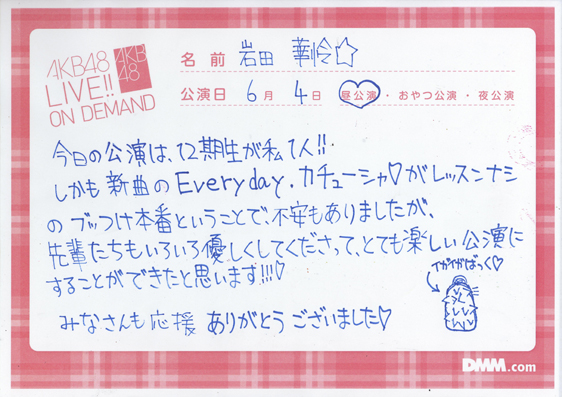 AKB48
LIVE!!
ON DEMAND
AKB
48
名前 岩田 華怜☆
公演日 6月 4日 昼公演・おやつ公演・夜公演
今日の公演は、12期生が私1人!!
しかも新曲のEveryday、カチューシャ♡がレッスンナシ
のブッつけ本番ということで、不安もありましたが、
先輩たちもいろいろ優しくしてくださって、とても楽しい公演に
することができたと思います!!!♡
イガイガばっく♡
みなさんも応援ありがとうございました♡
DMM.com